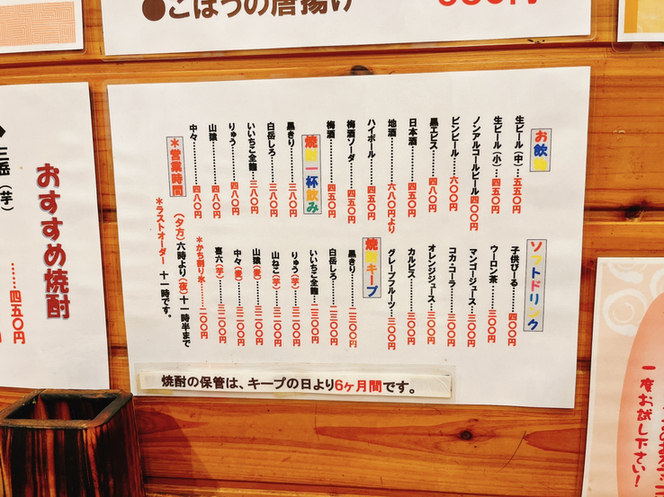 ●ごぼうの唐揚げ
お飲物
生ビール(中)……五五〇円
生ビール(小)……四五〇円
ノンアルコールビール 四〇〇円
ビンビール……六〇〇円
黒エビス……四八〇円
日本酒……四五〇円
地酒……六八〇円より
ハイボール……四五〇円
梅酒ソーダ……四五〇円
梅酒……四五〇円
焼酎一杯飲み
黒きり……三八〇円
白岳しろ……三八〇円
いいちこ全麹……三八〇円
りゅう……四八〇円
山猿……四八〇円
中々……四八〇円
*営業時間
(夕方)六時より(夜)十一時半まで
*ラストオーダー 十一時です。
ソフトドリンク
子供びーる……四〇〇円
ウーロン茶……三〇〇円
マンゴージュース……三〇〇円
コカ・コーラ……三〇〇円
オレンジジュース……三〇〇円
カルピス……三〇〇円
グレープフルーツ……三〇〇円
焼酎キープ
黒きり……二三〇〇円
白岳しろ……二三〇〇円
いいちこ全麹……二三〇〇円
りゅう(芋)……三一〇〇円
山ねこ(芋)……三一〇〇円
山猿(麦)……三一〇〇円
中々(麦)……三一〇〇円
喜六(芋)……三一〇〇円
*かち割り氷……二〇〇円
焼酎の保管は、キープの日より6ヶ月間です。
おすすめ焼酎
三岳(芋)
……四五〇円
一度お試し下さい!